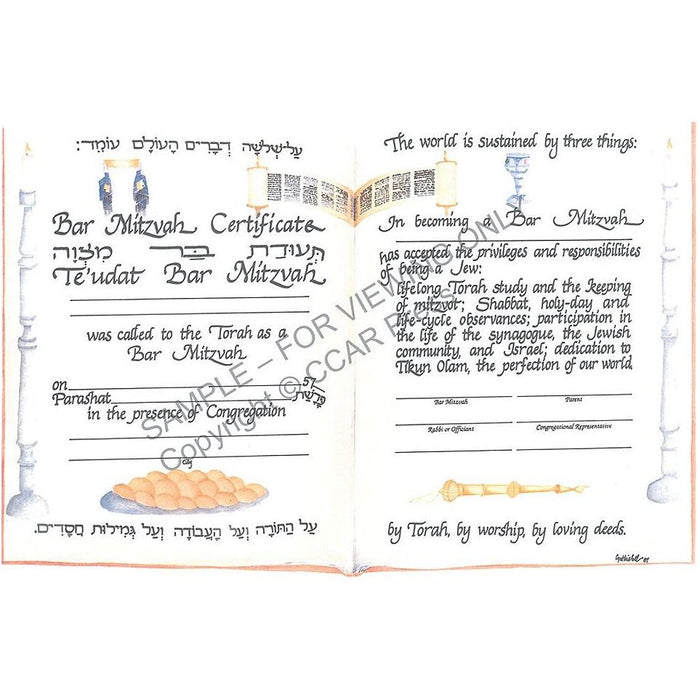 עַל-שְׁלֹשָׁה דְבָרִים הָעוֹלָם עוֹמֵד:
Bar Mitzvah Certificate
תְּעוּדַת בַּר מִצְוָה
Te'udat Bar Mitzvah
was called to the Torah as a
Bar Mitzvah
on
57
Parashat
פָּרָשַׁת
in the presence of Congregation
City
עַל הַתּוֹרָה וְעַל הָעֲבוֹדָה וְעַל גְּמִילוּת חֲסָדִים.
The world is sustained by three things:
In becoming a Bar Mitzvah
has accepted the privileges and responsibilities
of being a Jew:
lifelong Torah study and the keeping
of mitzvot; Shabbat, holy-day and
life-cycle observances; participation in
the life of the synagogue, the Jewish
community, and Israel; dedication to
Tikun Olam, the perfection of our world.
Bar Mitzvah
Parent
Rabbi or Officiant
Congregational Representative
by Torah, by worship, by loving deeds.
SAMPLE – FOR VIEWING ONLY
Copyright © CCAR Press